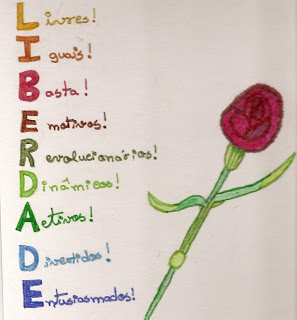 Livres!
Iguais!
Basta!
Emotivos!
Revolucionários!
Dinâmicos!
Activos!
Divertidos!
Entusiasmados!